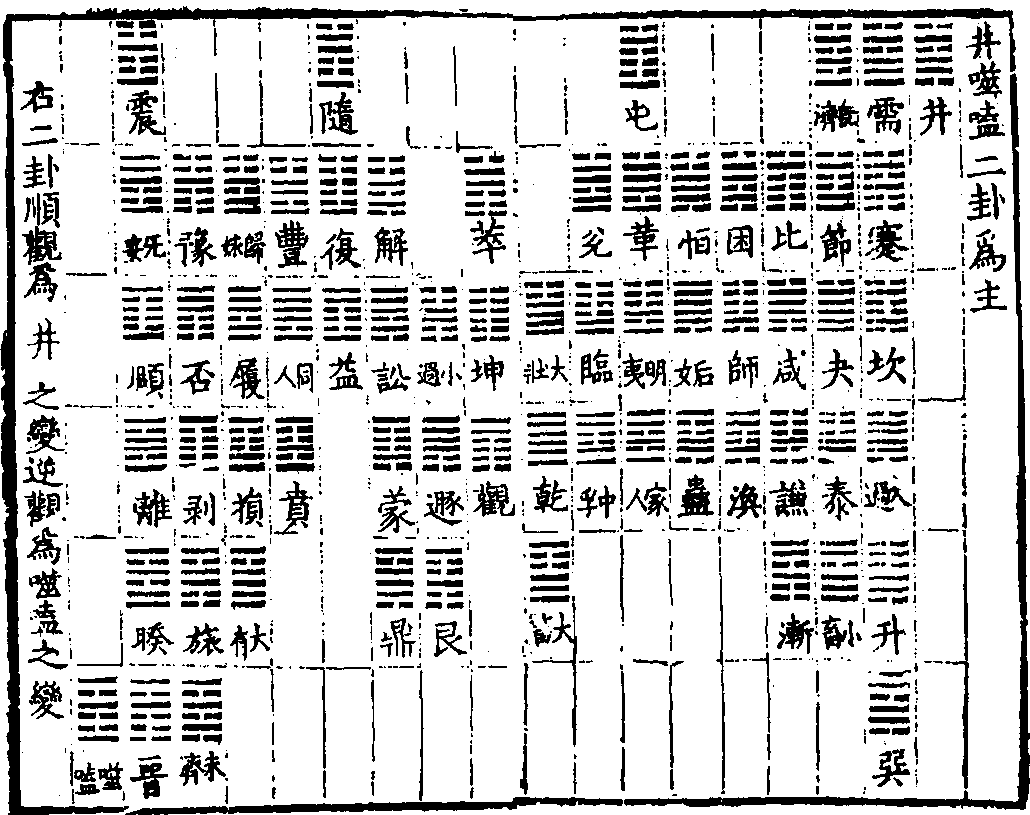 井噬嗑二卦爲主
井 需 既濟 屯 隨 震
蹇 節 比 困 恒 革 兌 萃 解 復 豐 歸妹 豫 无妄
坎 夬 咸 師 姤 明夷 臨 大壯 坤 小過 訟 益 同人 履 否 頤
大過 泰 謙 渙 蠱 家人 中孚 乾 觀 遯 蒙 賁 損 剥 離
升 小畜 漸 大畜 艮 鼎 大有 旅 睽
巽 未濟 晉 噬嗑
右二卦順觀爲井之變逆觀爲噬嗑之變